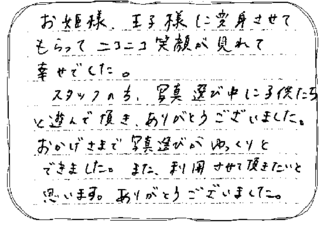 お姫様、王子様に変身させて
もらってニコニコ笑顔が見れて
幸せでした。
スタッフの方、写真選び中に子供たち
と遊んで頂き、ありがとうございました。
おかげさまで写真選びがゆっくりと
できました。また、利用させて頂きたいと
思います。ありがとうございました。